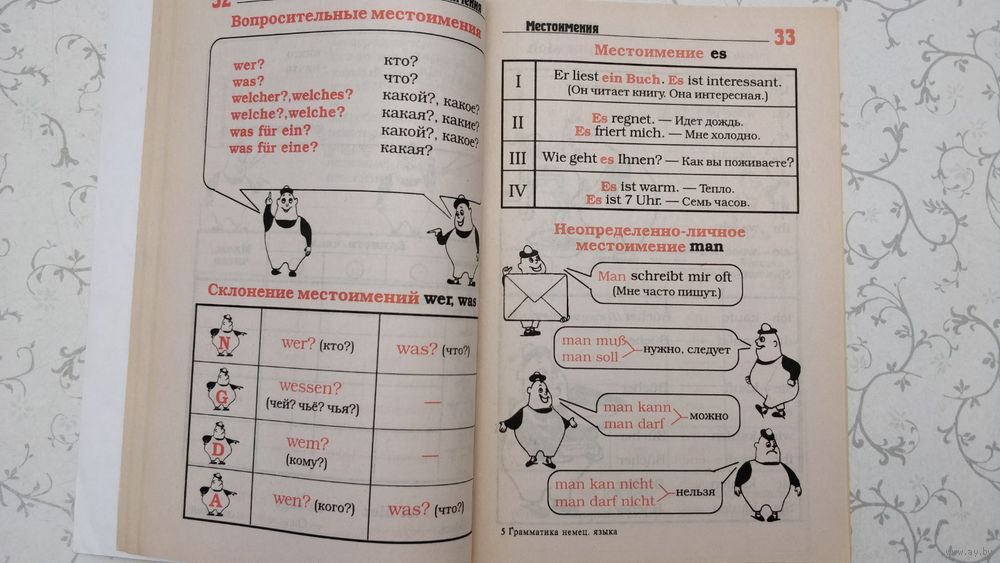 32
Вопросительные местоимения
wer? кто?
was? что?
welcher?, welches? какой?, какое?
welche?, welche? какая?, какие?
was für ein? какой?, какое?
was für eine? какая?
Склонение местоимений wer, was
N wer? (кто?) was? (что?)
G wessen? —
(чей? чьё? чья?)
D wem? —
(кому?)
A wen? (кого?) was? (что?)
Местоимения 33
Местоимение es
I Er liest ein Buch. Es ist interessant.
(Он читает книгу. Она интересная.)
II Es regnet. — Идет дождь.
Es friert mich. — Мне холодно.
III Wie geht es Ihnen? — Как вы поживаете?
IV Es ist warm. — Тепло.
Es ist 7 Uhr. — Семь часов.
Неопределенно-личное
местоимение man
Man schreibt mir oft
(Мне часто пишут.)
man muß
man soll
нужно, следует
man kann
man darf
можно
man kan nicht
man darf nicht
нельзя
5 Грамматика немец. языка
www.ay.by